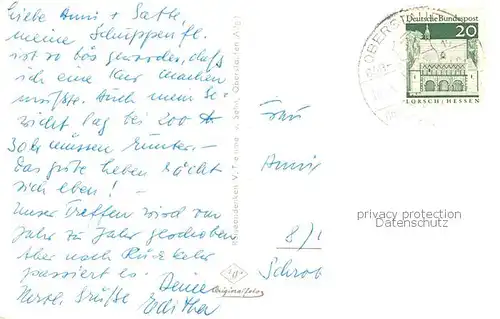 Liebe Anni + Sattl.
meine Schuppenfl.
ist so bös geworden, daß
ich eine Kur machen
mußte. Auch mein Ge-
wicht lag bei 200 
30 müssen runter. -
Das gute Leben rächt
sich eben! -
Unser Treffen wird von
Jahr zu Jahr geschoben
Aber nach Rückkehr
passiert es.
Herzl. Grüße Deine
Editha
Frau
Anni
8/1
Schrob
OBERSTAUFEN
Deutsche Bundespost
20
LORSCH/HESSEN
Oberstaufen Allg.
Originalfoto
privacy protection
Datenschutz